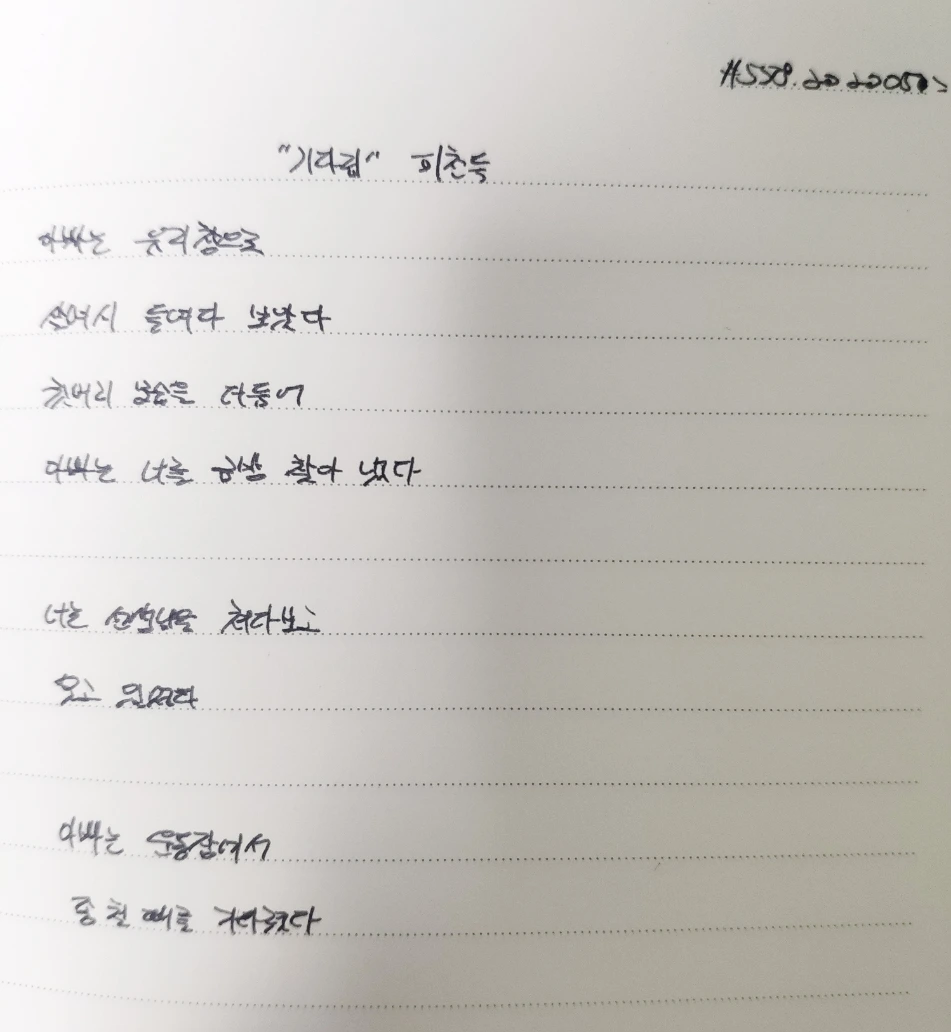 #558.
"기다림" 피천득
아빠는 유리창으로
살며시 들여다 보았다
뒷머리 모습을 더듬어
아빠는 너를 금방 찾아 냈다
너는 선생님을 쳐다보고
웃고 있었다
아빠는 운동장에서
종 칠 때를 기다렸다